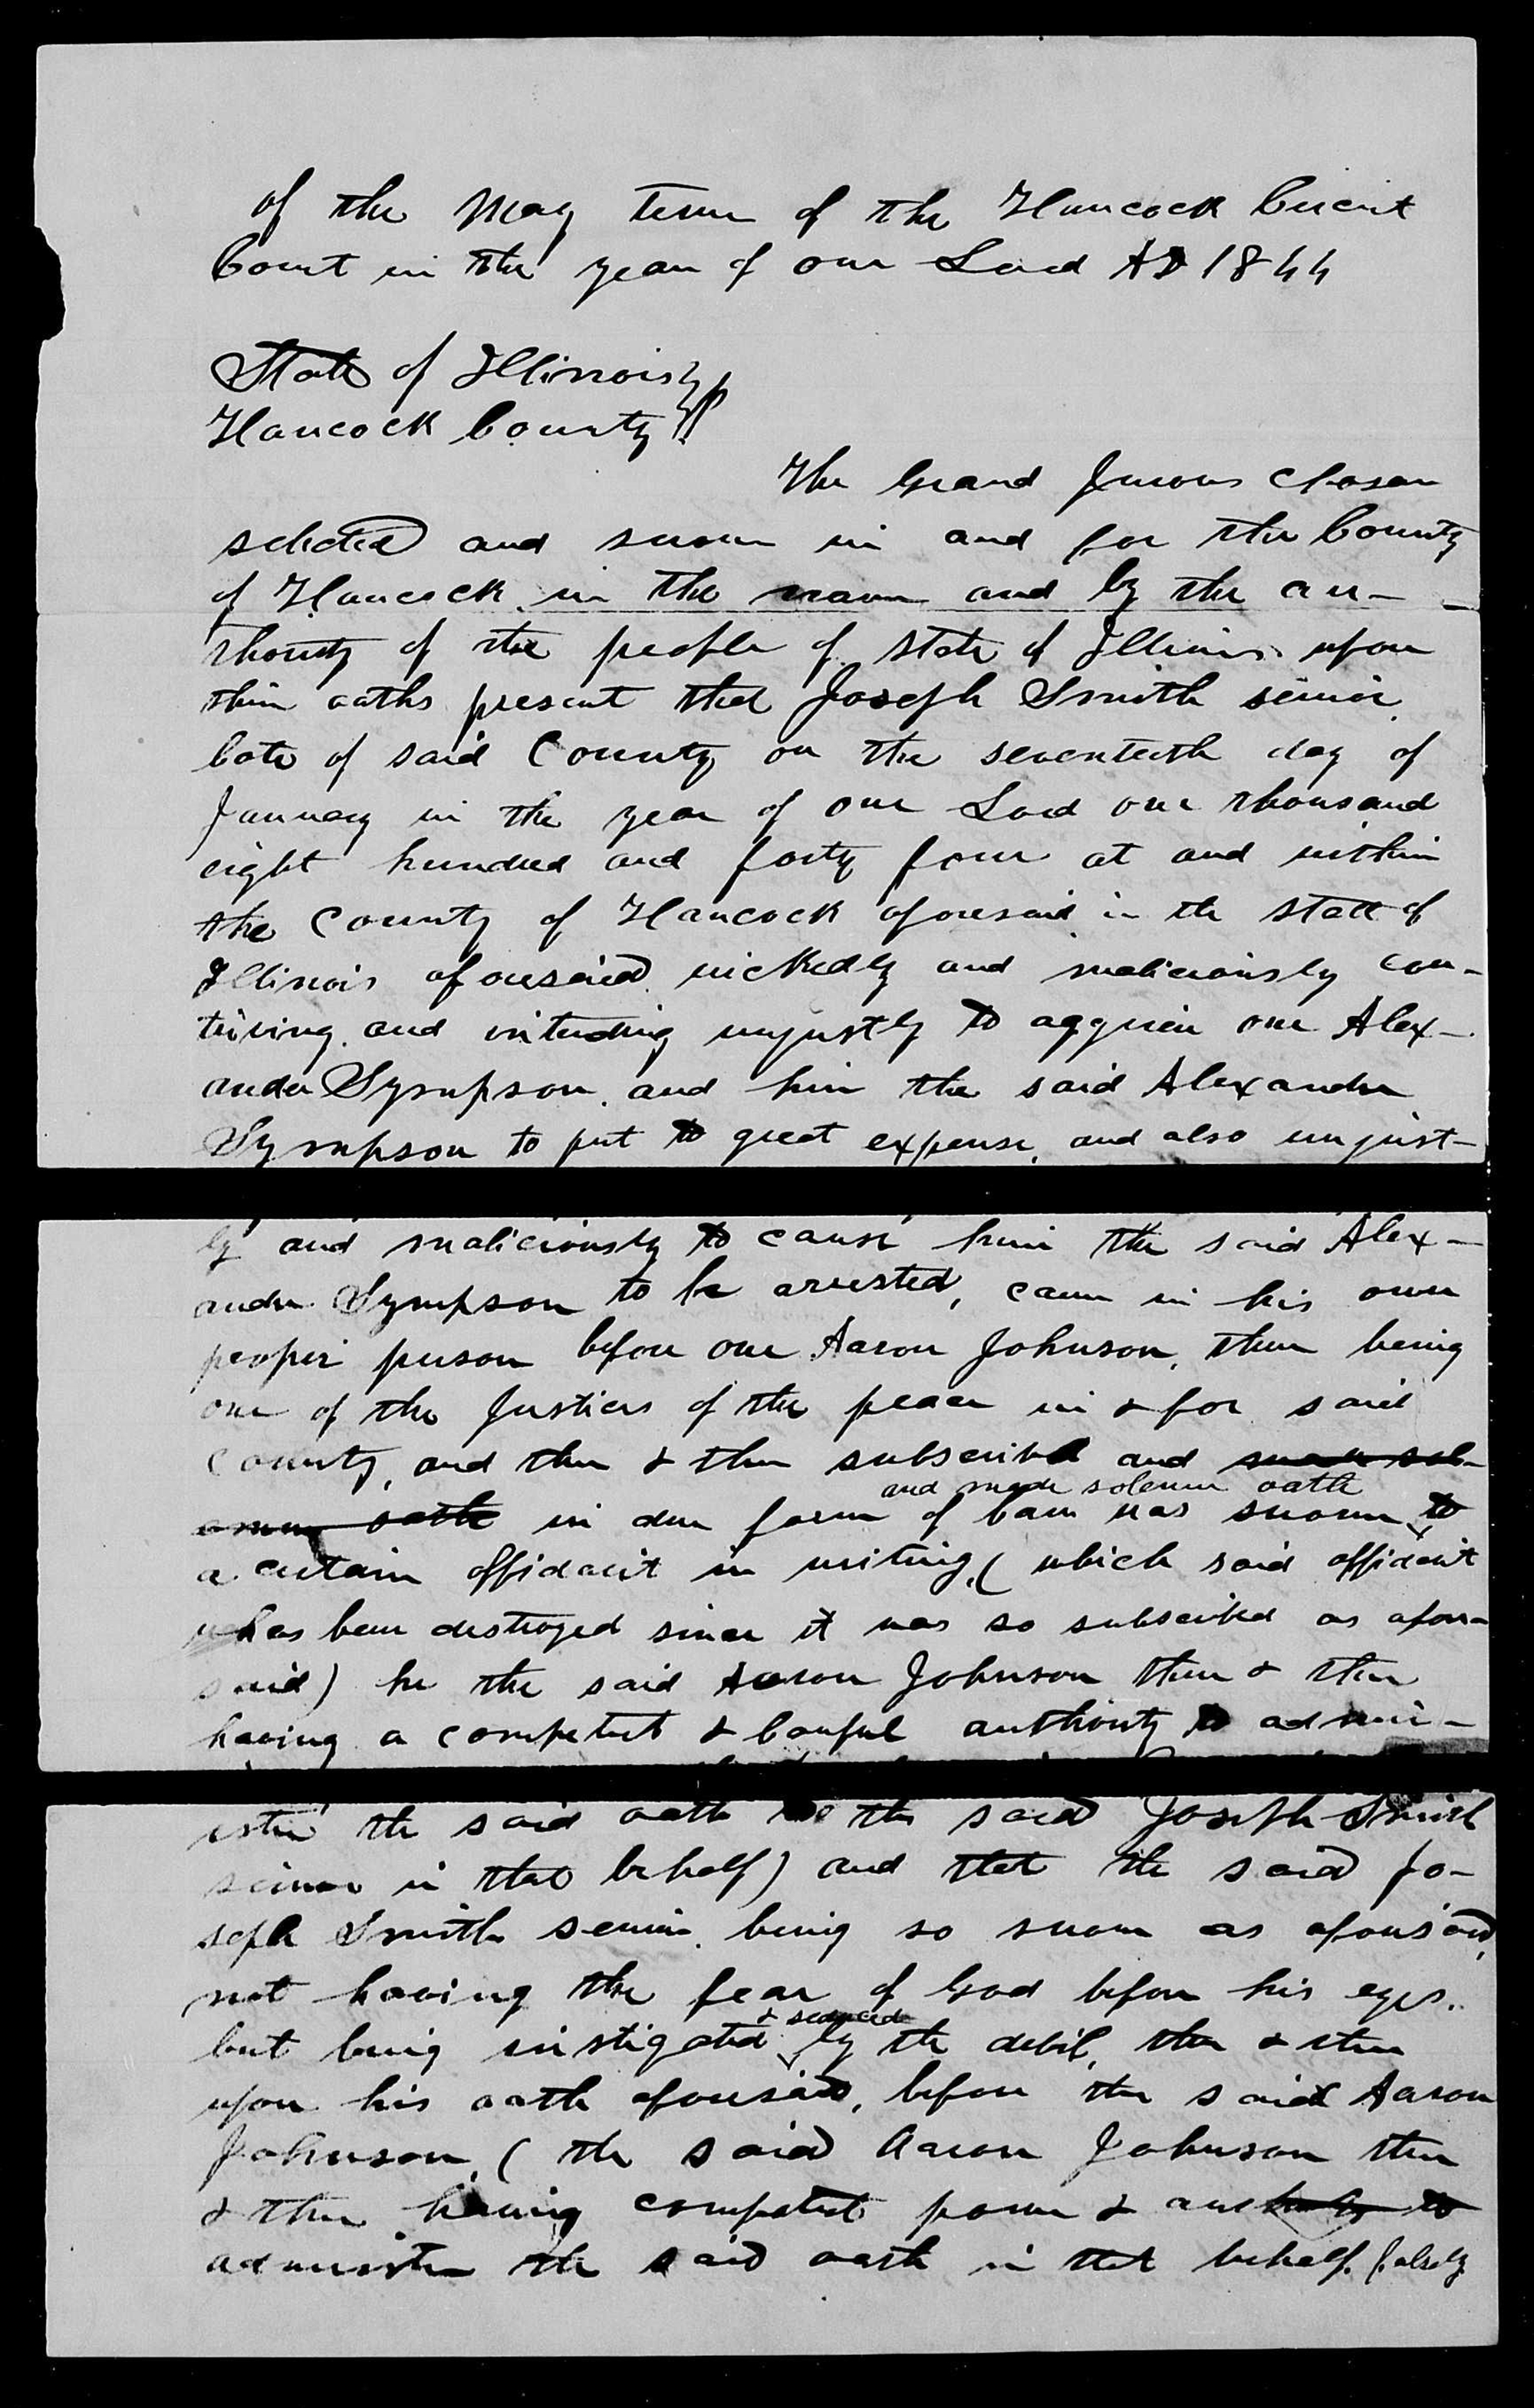 of the May term of the Hancock Circuit
Court in the year of our Lord AD 1844
State of Illinois
Hancock County
The Grand Jurors chosen
selected and sworn in and for the County
of Hancock in the name and by the au-
thority of the people of state of Illinois upon
their oaths present that Joseph Smith senior
late of said County on the seventeeth day of
January in the year of our Lord one thousand
eight hundred and forty four at and within
the County of Hancock aforesaid in the state of
Illinois aforesaid wickedly and maliciously con-
triving and intending unjustly to aggrieve one Alex-
ander Sympson, and him the said Alexander
Sympson to put to great expense, and also unjust-
ly and maliciously to cause him the said Alex-
ander Sympson to be arrested, came in his own
proper person before one Aaron Johnson, then being
one of the Justices of the peace in & for said
County, and then & there subscribed and
and made solemn oath
oath in due form of law was sworn to
a certain affidavit in writing, (which said affidavit
has been destroyed since it was so subscribed as afore-
said) he the said Aaron Johnson then & there
having a competent & lawful authority to admin-
ister the said oath to the said Joseph Smith
senior in that behalf) and that the said Jo-
seph Smith senior, being so sworn as aforesaid,
not having the fear of God before his eyes..
& seduced
but being instigated by the debil, then & there
upon his oath aforesaid, before the said Aaron
Johnson, (the said Aaron Johnson then
& there having competent power & authority to
administer the said oath in that behalf. falsely